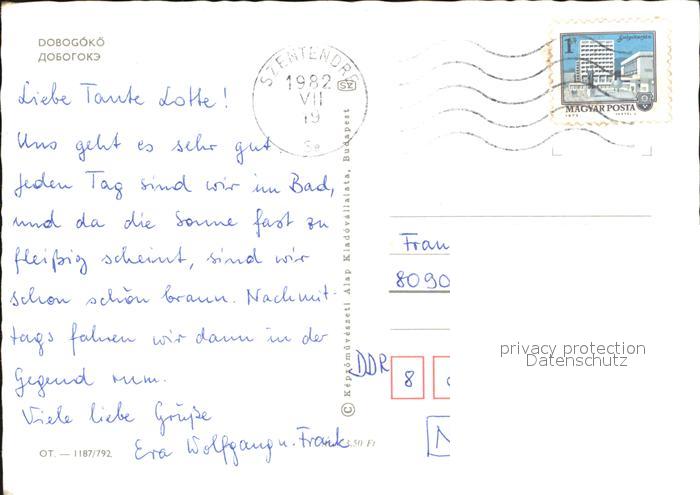 DOBOGÓKŐ
ДОБОГОКЭ
Liebe Tante Lotte!
Uns geht es sehr gut.
Jeden Tag sind wir im Bad,
und da die Sonne fast zu
fleißig scheint, sind wir
schon schön braun. Nachmit-
tags fahren wir dann in der
Gegend rum.
Viele liebe Grüße
Eva Wolfgang u. Frank
OT. — 1187/792
3.50 Ft
© Képzőművészeti Alap Kiadóvállalata, Budapest
SZENTENDRE
1982
VII
19
SZ
1 Ft
Salgótarján
MAGYAR POSTA
1973
Fran
8090
DDR
8
privacy protection
Datenschutz